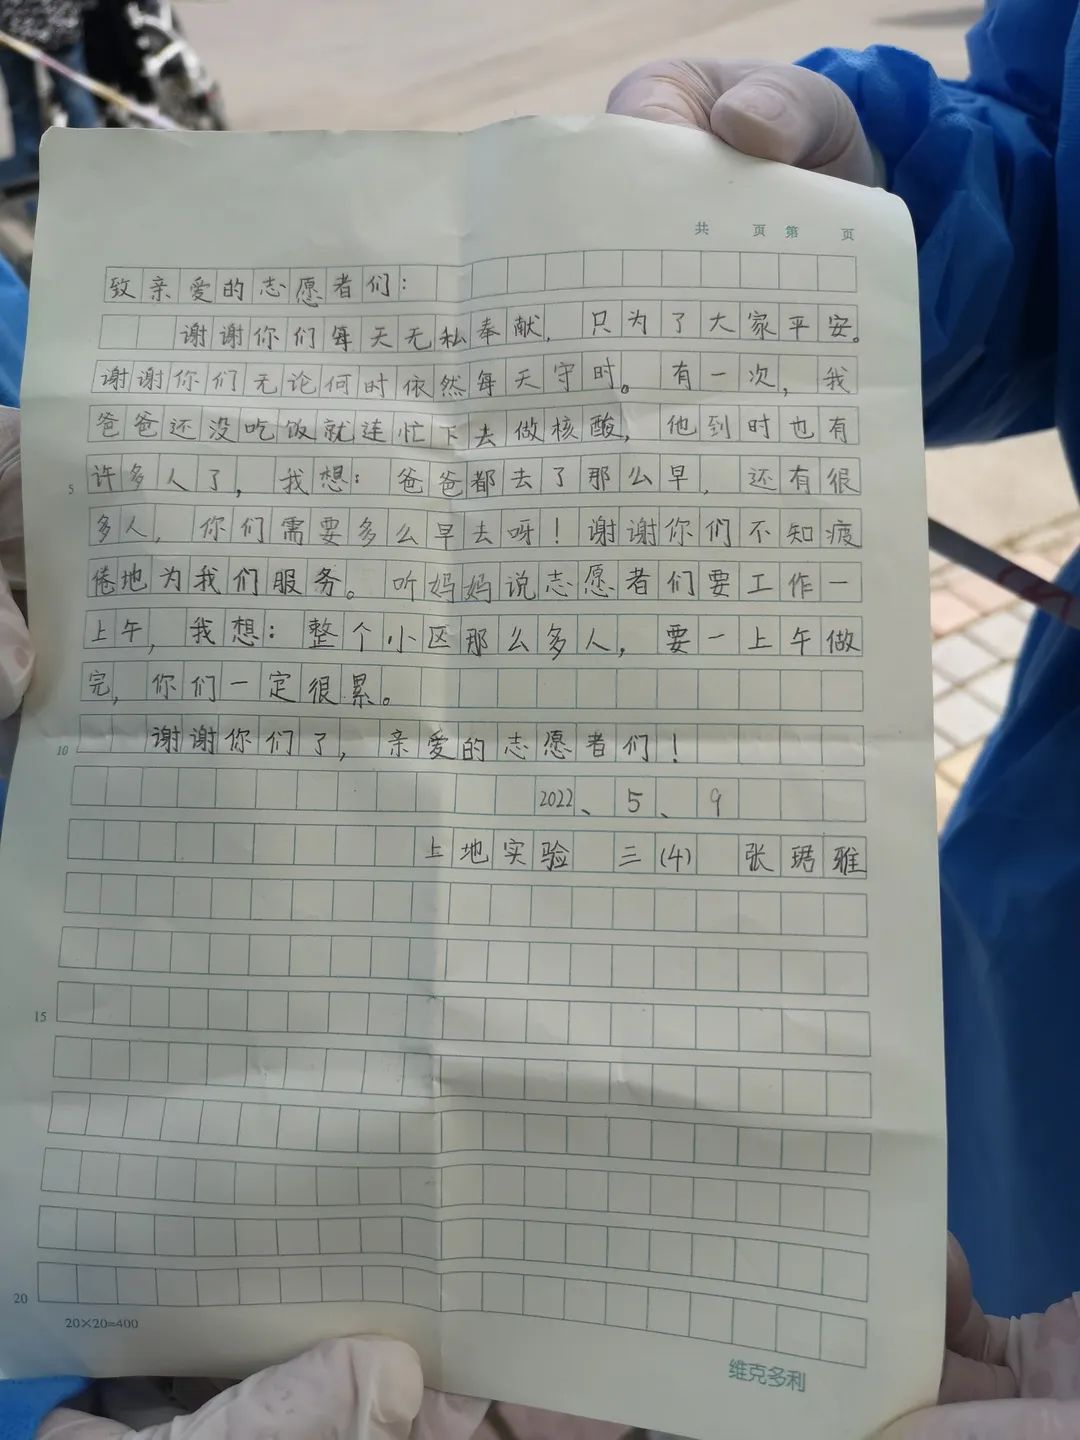 共 页 第 页
致亲爱的志愿者们：
谢谢你们每天无私奉献，只为了大家平安。
谢谢你们无论何时依然每天守时。有一次，我
爸爸还没吃饭就连忙下去做核酸，他到时也有
5 许多人了，我想：爸爸都去了那么早，还有很
多人，你们需要多么早去呀！谢谢你们不知疲
倦地为我们服务。听妈妈说志愿者们要工作一
上午，我想：整个小区那么多人，要一上午做
完，你们一定很累。
10 谢谢你们了，亲爱的志愿者们！
2022、5、9
上地实验 三(4) 张珺雅
15
20
20×20=400
维克多利